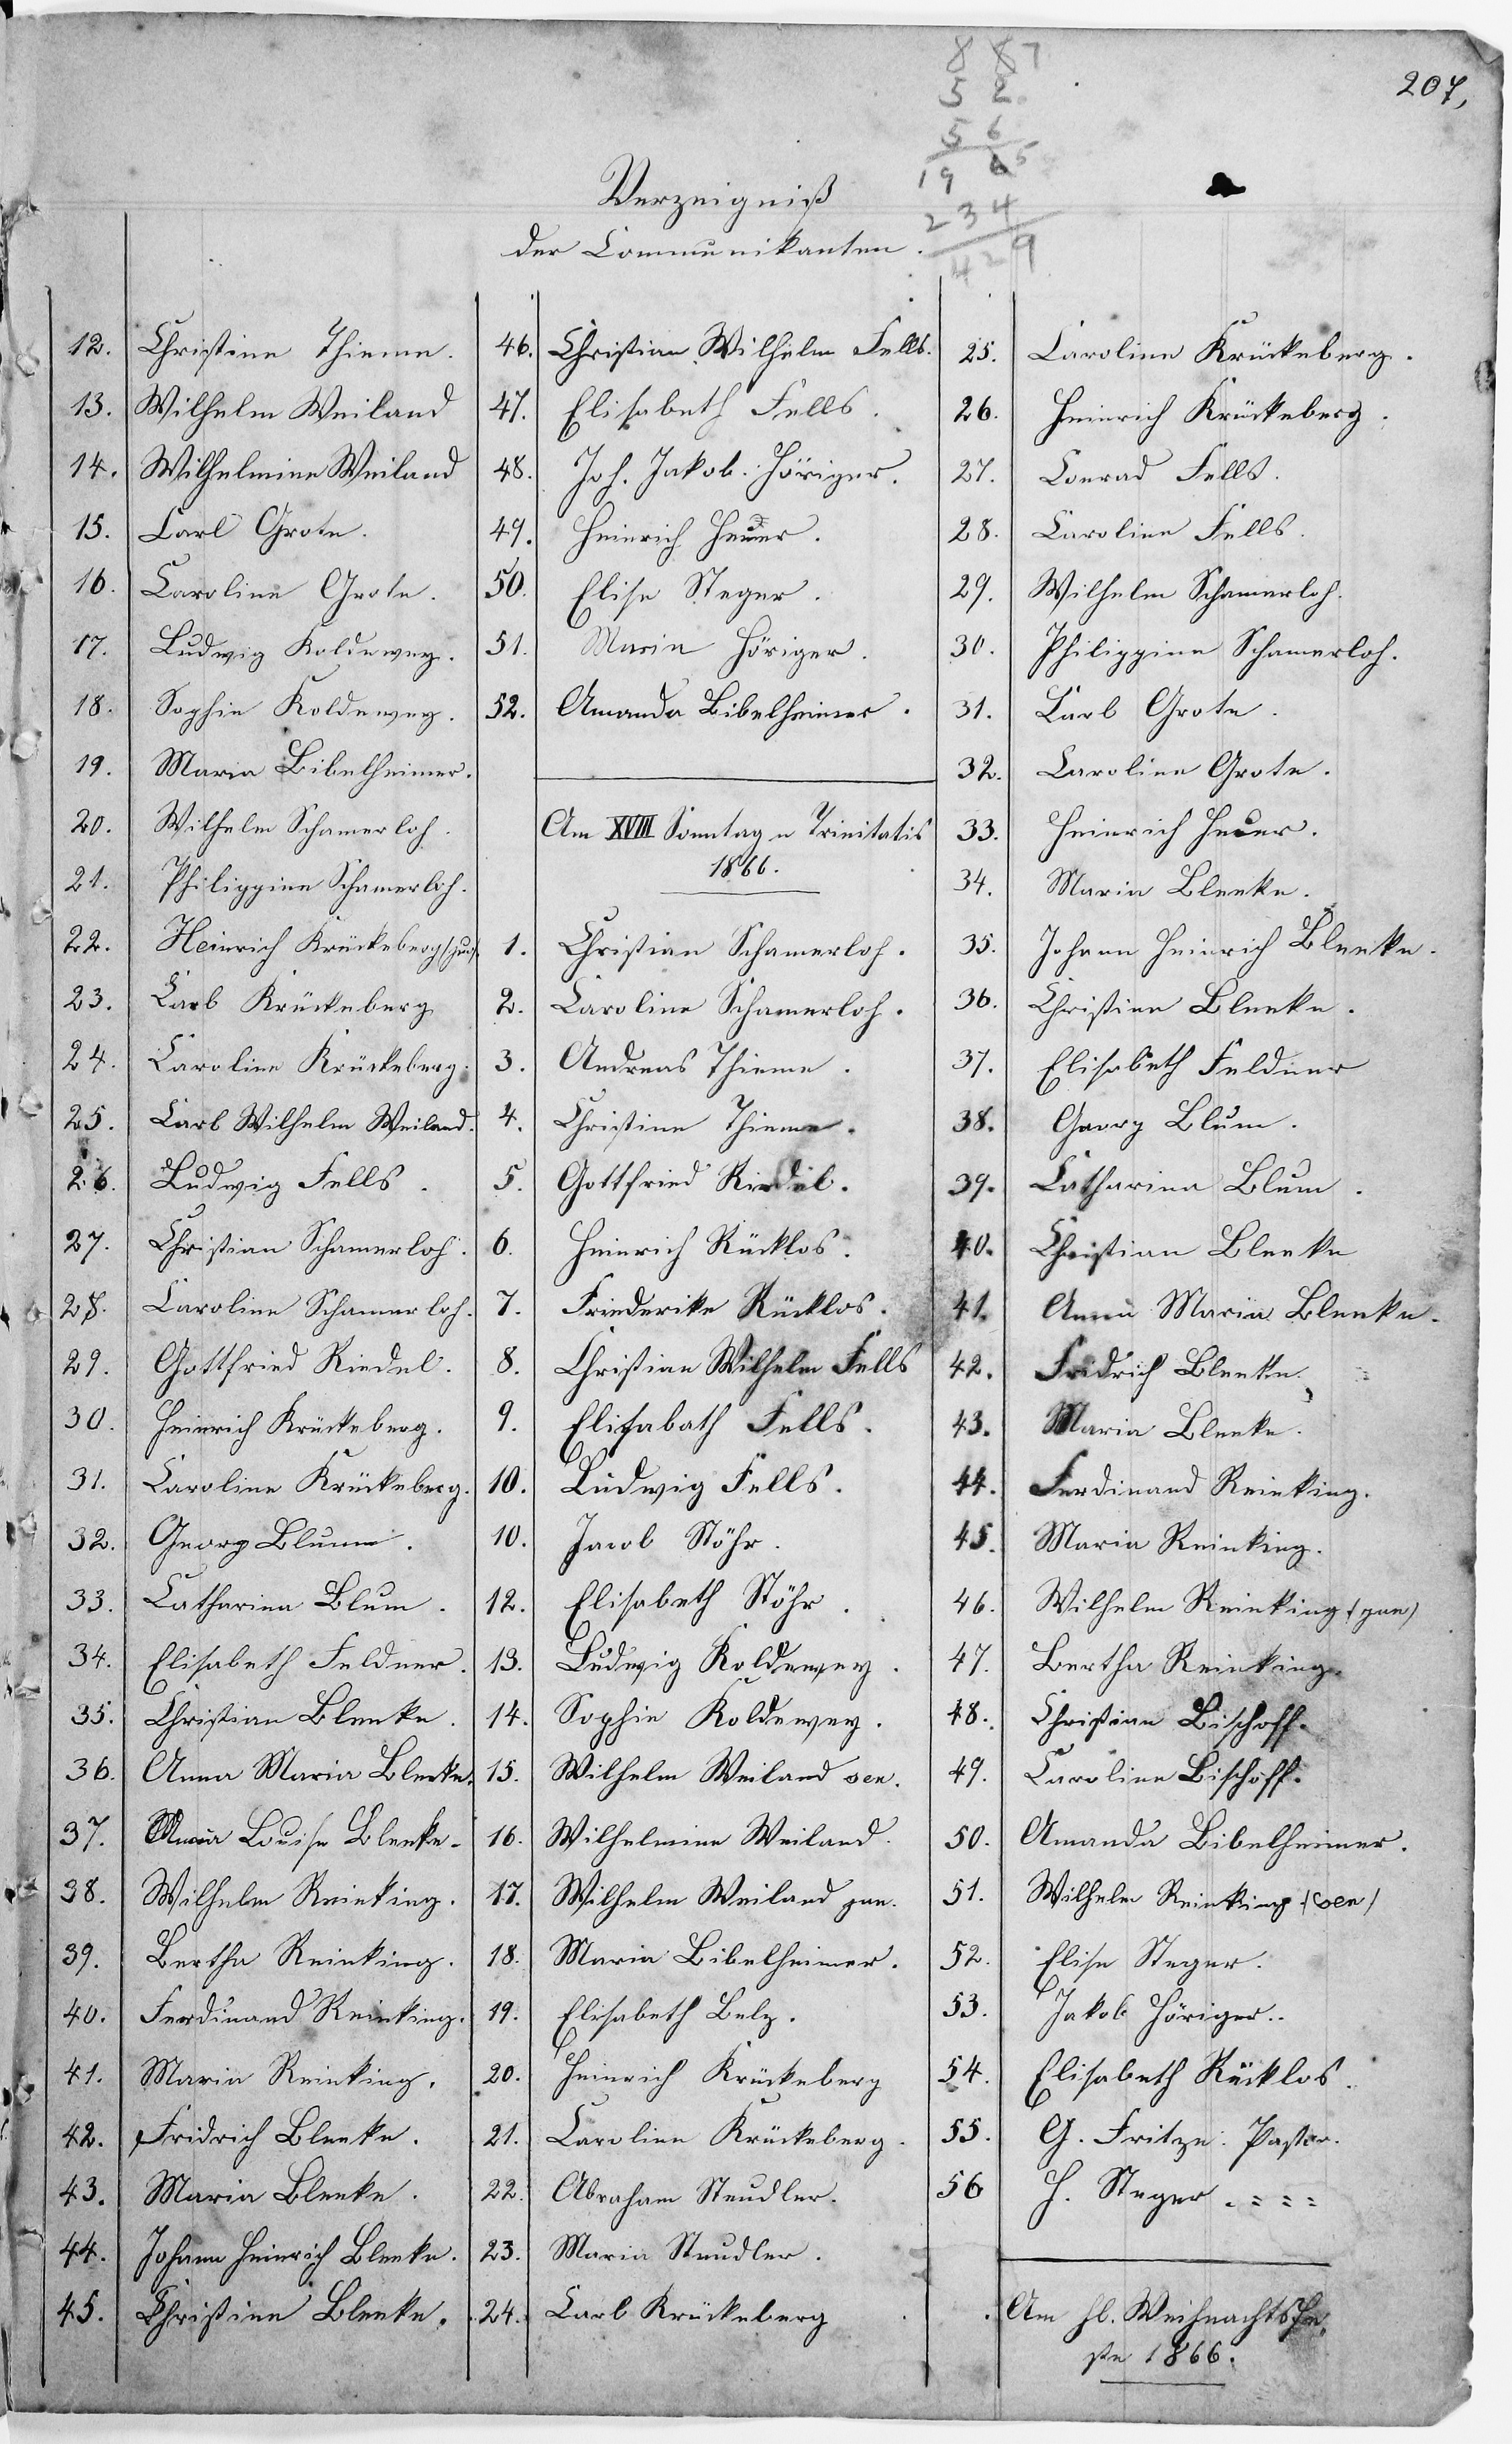 207,
8 87
5 2
5 6
19 65
234
429
Verzeigniß
der Communikanten.
12. Christine Thieme.
13. Wilhelm Weiland
14. Wilhelmine Weiland
15. Carl Grote.
16. Caroline Grote.
17. Ludwig Koldewey.
18. Sophie Koldewey.
19. Maria Bibelheimer.
20. Wilhelm Schamerloh.
21. Philippine Schamerloh.
22. Heinrich Krückeberg (jun)
23. Carl Krückeberg
24. Caroline Krückeberg.
25. Carl Wilhelm Weiland.
26. Ludwig Fells.
27. Christian Schamerloh.
28. Caroline Schamerloh.
29. Gottfried Riedel.
30. Heinrich Krückeberg.
31. Caroline Krückeberg.
32. Georg Blum.
33. Catharina Blum.
34. Elisabeth Feldner.
35. Christian Bleeke.
36. Anna Maria Bleeke.
37. Anna Louise Bleeke.
38. Wilhelm Reinking.
39. Bertha Reinking.
40. Ferdinand Reinking.
41. Maria Reinking.
42. Fridrich Bleeke.
43. Maria Bleeke.
44. Johann Heinrich Bleeke.
45. Christine Bleeke.
46. Christian Wilhelm Fells.
47. Elisabeth Fells.
48. Joh. Jakob Höriger.
49. Heinrich Heuer.
50. Elise Steger.
51. Maria Höriger.
52. Amanda Bibelheimer.
Am XVIII Sonntag n Trinitatis
1866.
1. Christian Schamerloh.
2. Caroline Schamerloh.
3. Andreas Thieme.
4. Christine Thieme.
5. Gottfried Riedel.
6. Heinrich Rücklos.
7. Friederike Rücklos.
8. Christian Wilhelm Fells
9. Elisabath Fells.
10. Ludwig Fells.
10. Jacob Stöhr.
12. Elisabeth Stöhr.
13. Ludwig Koldewey.
14. Sophie Koldewey.
15. Wilhelm Weiland sen.
16. Wilhelmine Weiland.
17. Wilhelm Weiland jun.
18. Maria Bibelheimer.
19. Elisabeth Belz.
20. Heinrich Krückeberg
21. Caroline Krückeberg.
22. Abraham Steudler.
23. Maria Steudler.
24. Carl Krückeberg
25. Caroline Krückeberg.
26. Heinrich Krückeberg.
27. Conrad Fells.
28. Caroline Fells.
29. Wilhelm Schamerloh.
30. Philippine Schamerloh.
31. Carl Grote.
32. Caroline Grote.
33. Heinrich Heuer.
34. Maria Bleeke.
35. Johann Heinrich Bleeke.
36. Christine Bleeke.
37. Elisabeth Feldner
38. Georg Blum.
39. Catharina Blum.
40. Christian Bleeke
41. Anna Maria Bleeke.
42. Fridrich Bleeke.
43. Maria Bleeke.
44. Ferdinand Reinking.
45. Maria Reinking.
46. Wilhelm Reinking (jun)
47. Bertha Reinking.
48. Christian Bischoff.
49. Caroline Bischoff.
50. Amanda Bibelheimer.
51. Wilhelm Reinking (sen)
52. Elise Steger.
53. Jakob Höriger..
54. Elisabeth Rücklos.
55. G. Fritze. Pastor.
56 H. Steger. = = =
Am hl. Weihnachtsfe,
ste 1866.